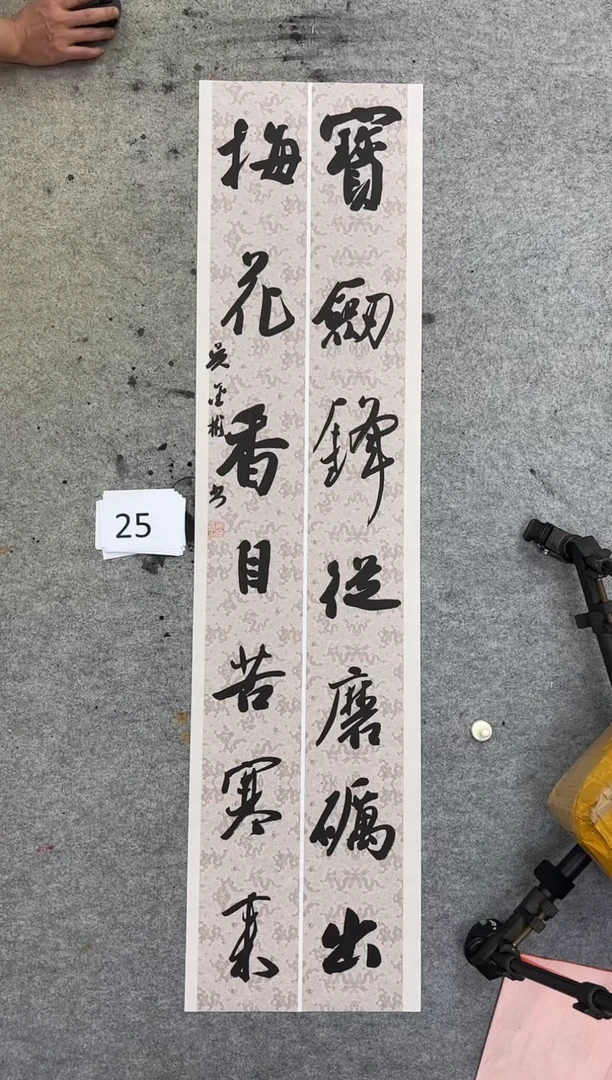 寶劍鋒從磨礪出
梅花香自苦寒來
吳金彬書
25